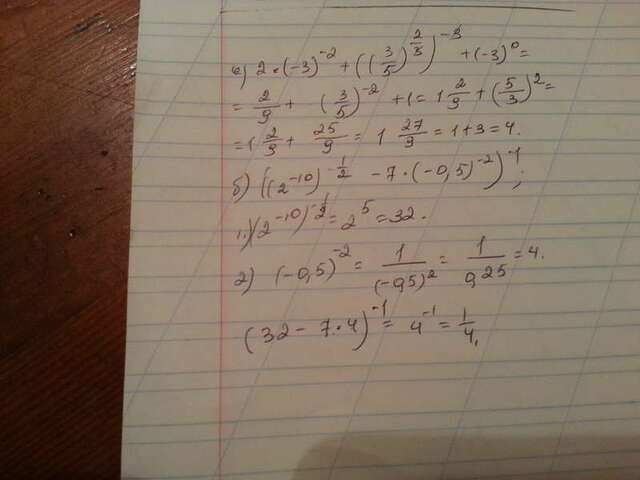 а) 2·(-3)^{-2} + ((3/5)^{2/3})^{-3} + (-3)^0 =
= 2/9 + (3/5)^{-2} + 1 = 1 2/9 + (5/3)^2 =
= 1 2/9 + 25/9 = 1 27/9 = 1+3 = 4.
б) ((2^{-10})^{-1/2} - 7·(-0,5)^{-2})^{-1};
1.)(2^{-10})^{-1/2} = 2^5 = 32.
2) (-0,5)^{-2} = 1/(-0,5)^2 = 1/0,25 = 4.
(32 - 7·4)^{-1} = 4^{-1} = 1/4.